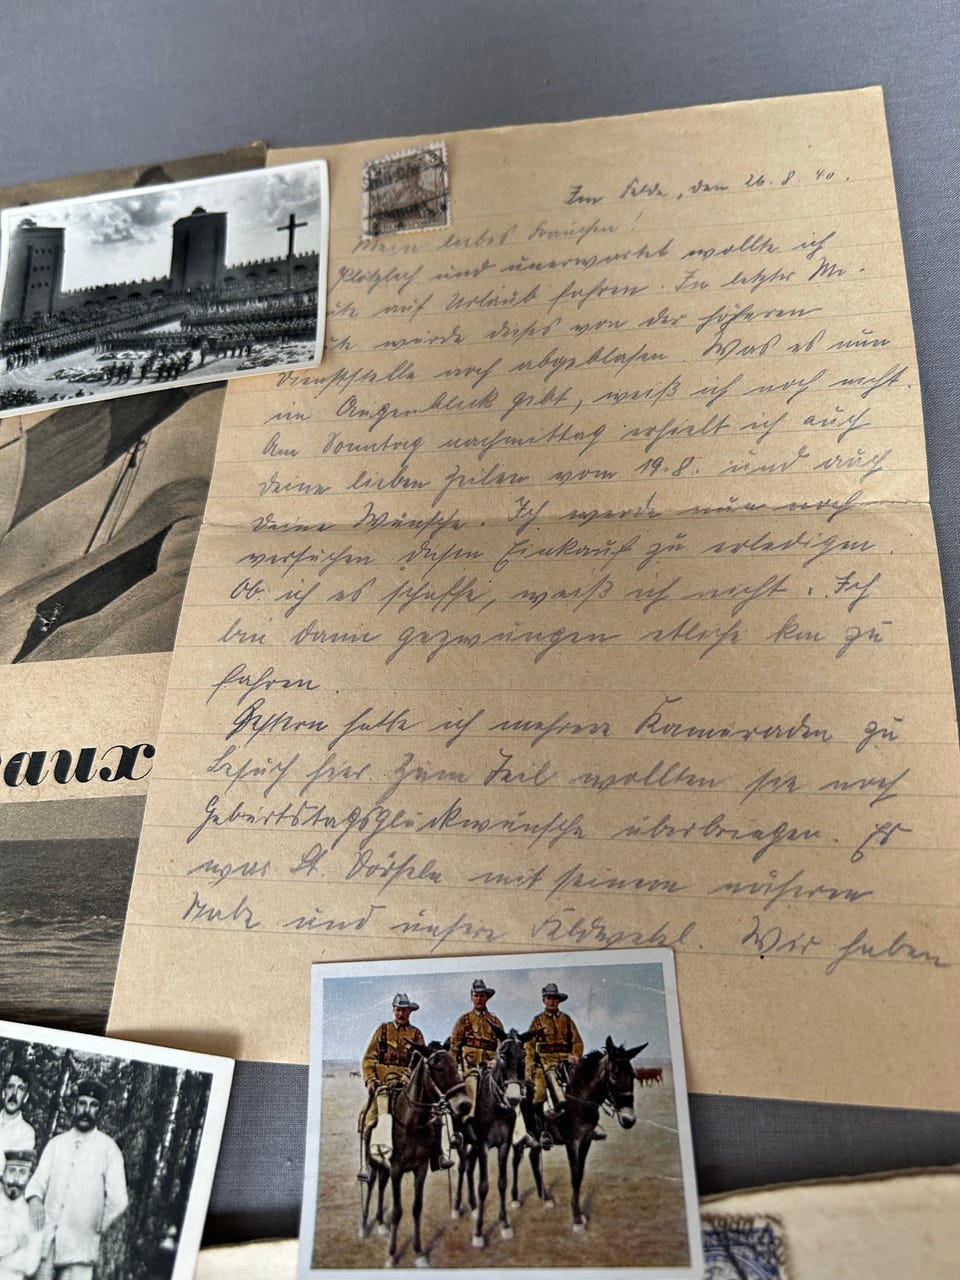 Im Felde, den 26. 8. 40.
Mein liebes Frauchen!
Plötzlich und unerwartet wollte ich
auf Urlaub fahren. In letzter Mi-
würde dieses von der höheren
Dienststelle noch abgeblasen. Was es nun
im Augenblick gibt, weiß ich noch nicht.
Am Sonntag nachmittag erhielt ich auch
Deine lieben Zeilen vom 19.8. und auch
Deine Wünsche. Ich werde nun noch
versuchen diesen Einkauf zu erledigen.
Ob ich es schaffe, weiß ich nicht. Ich
bin dann gezwungen etliche km zu
fahren.
Gestern hatte ich mehrere Kameraden zu
Besuch hier. Zum Teil wollten sie noch
Geburtstagsglückwünsche überbringen. Es
war Lt. mit seinem näheren
Stabe und unsere Feldwebel. Wir haben
aux